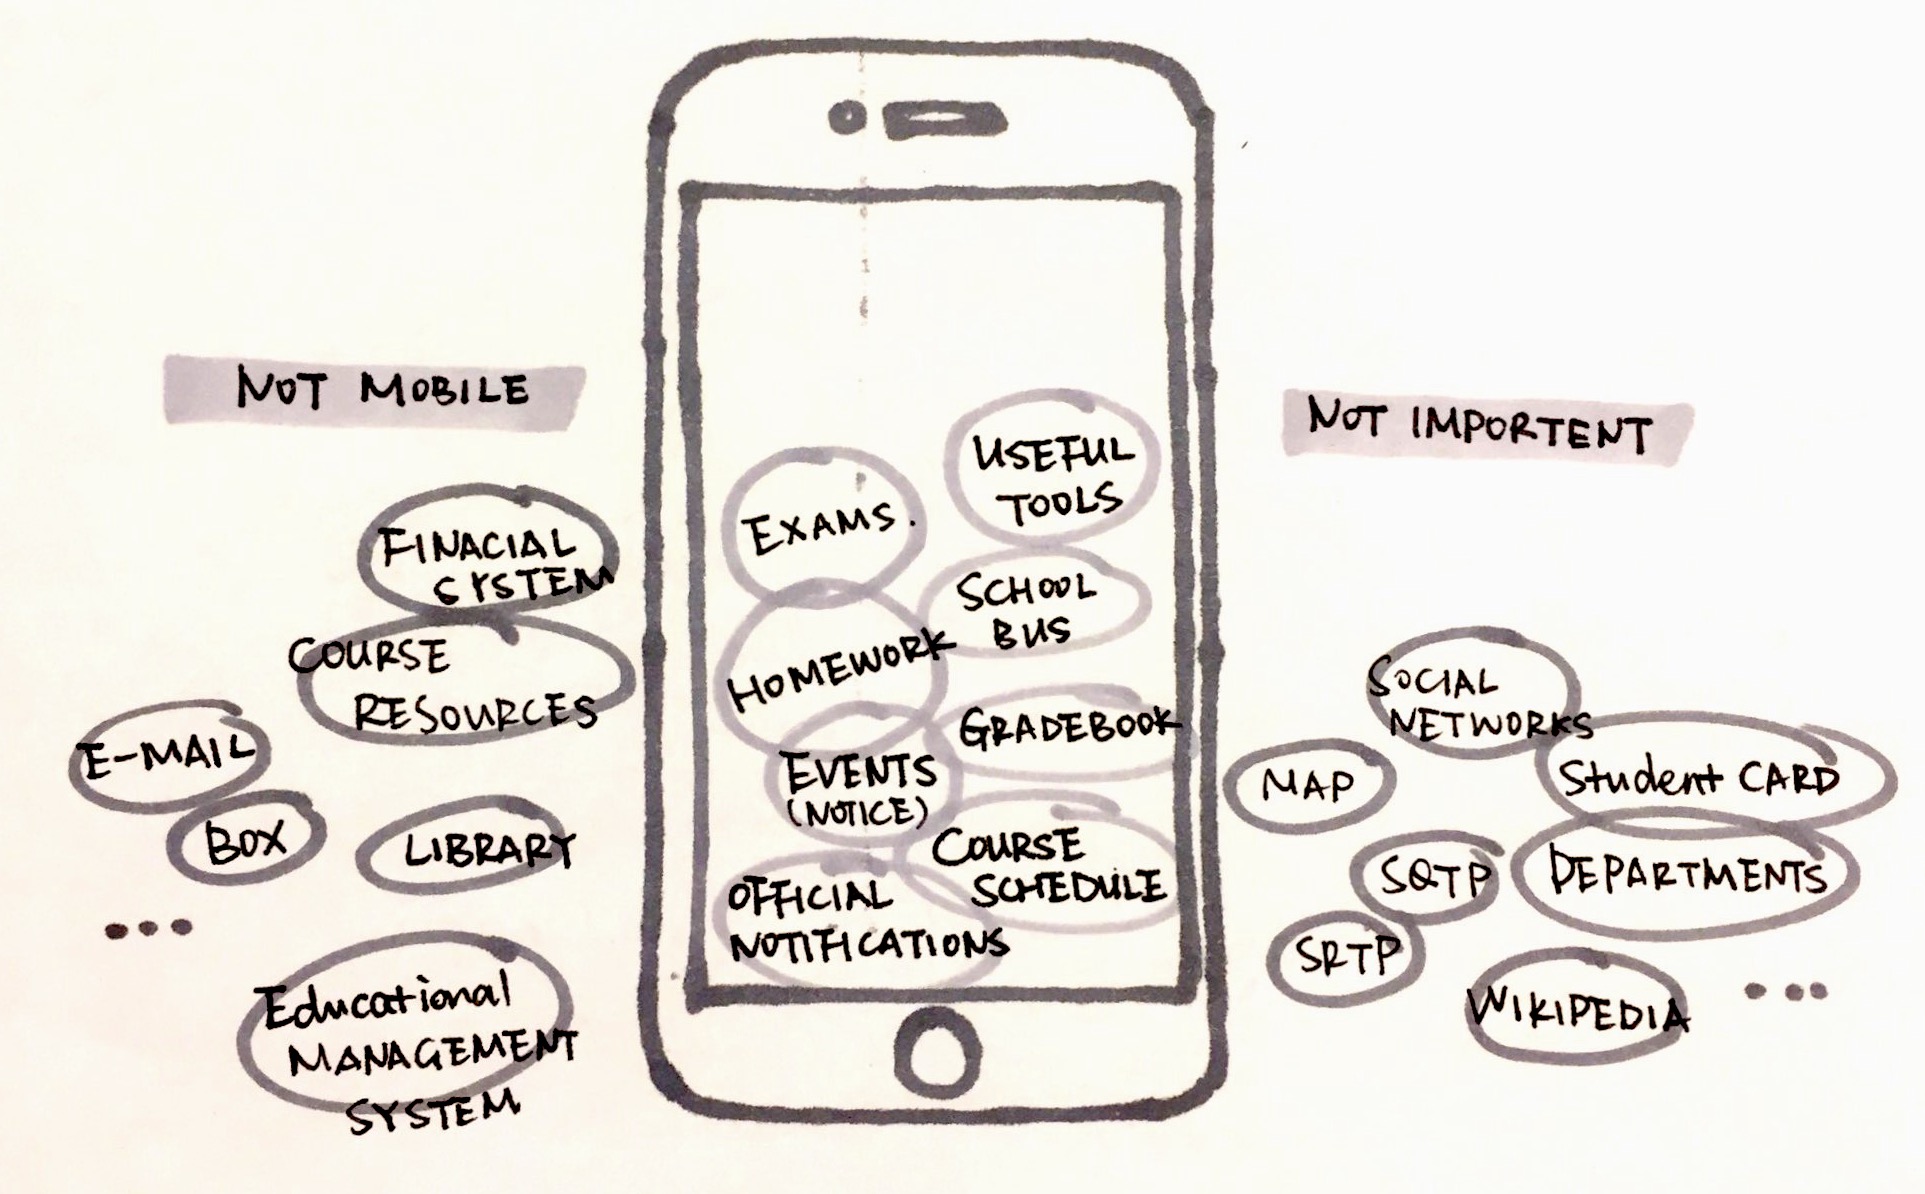 NOT MOBILE
FINACIAL
SYSTEM
COURSE
RESOURCES
E-MAIL
BOX
LIBRARY
...
Educational
MANAGEMENT
SYSTEM
USEFUL
TOOLS
EXAMS.
SCHOOL
BUS
HOMEWORK
GRADEBOOK
EVENTS
(NOTICE)
COURSE
SCHEDULE
OFFICIAL
NOTIFICATIONS
NOT IMPORTENT
SOCIAL
NETWORKS
MAP
Student CARD
SQTP
DEPARTMENTS
SRTP
WIKIPEDIA
...